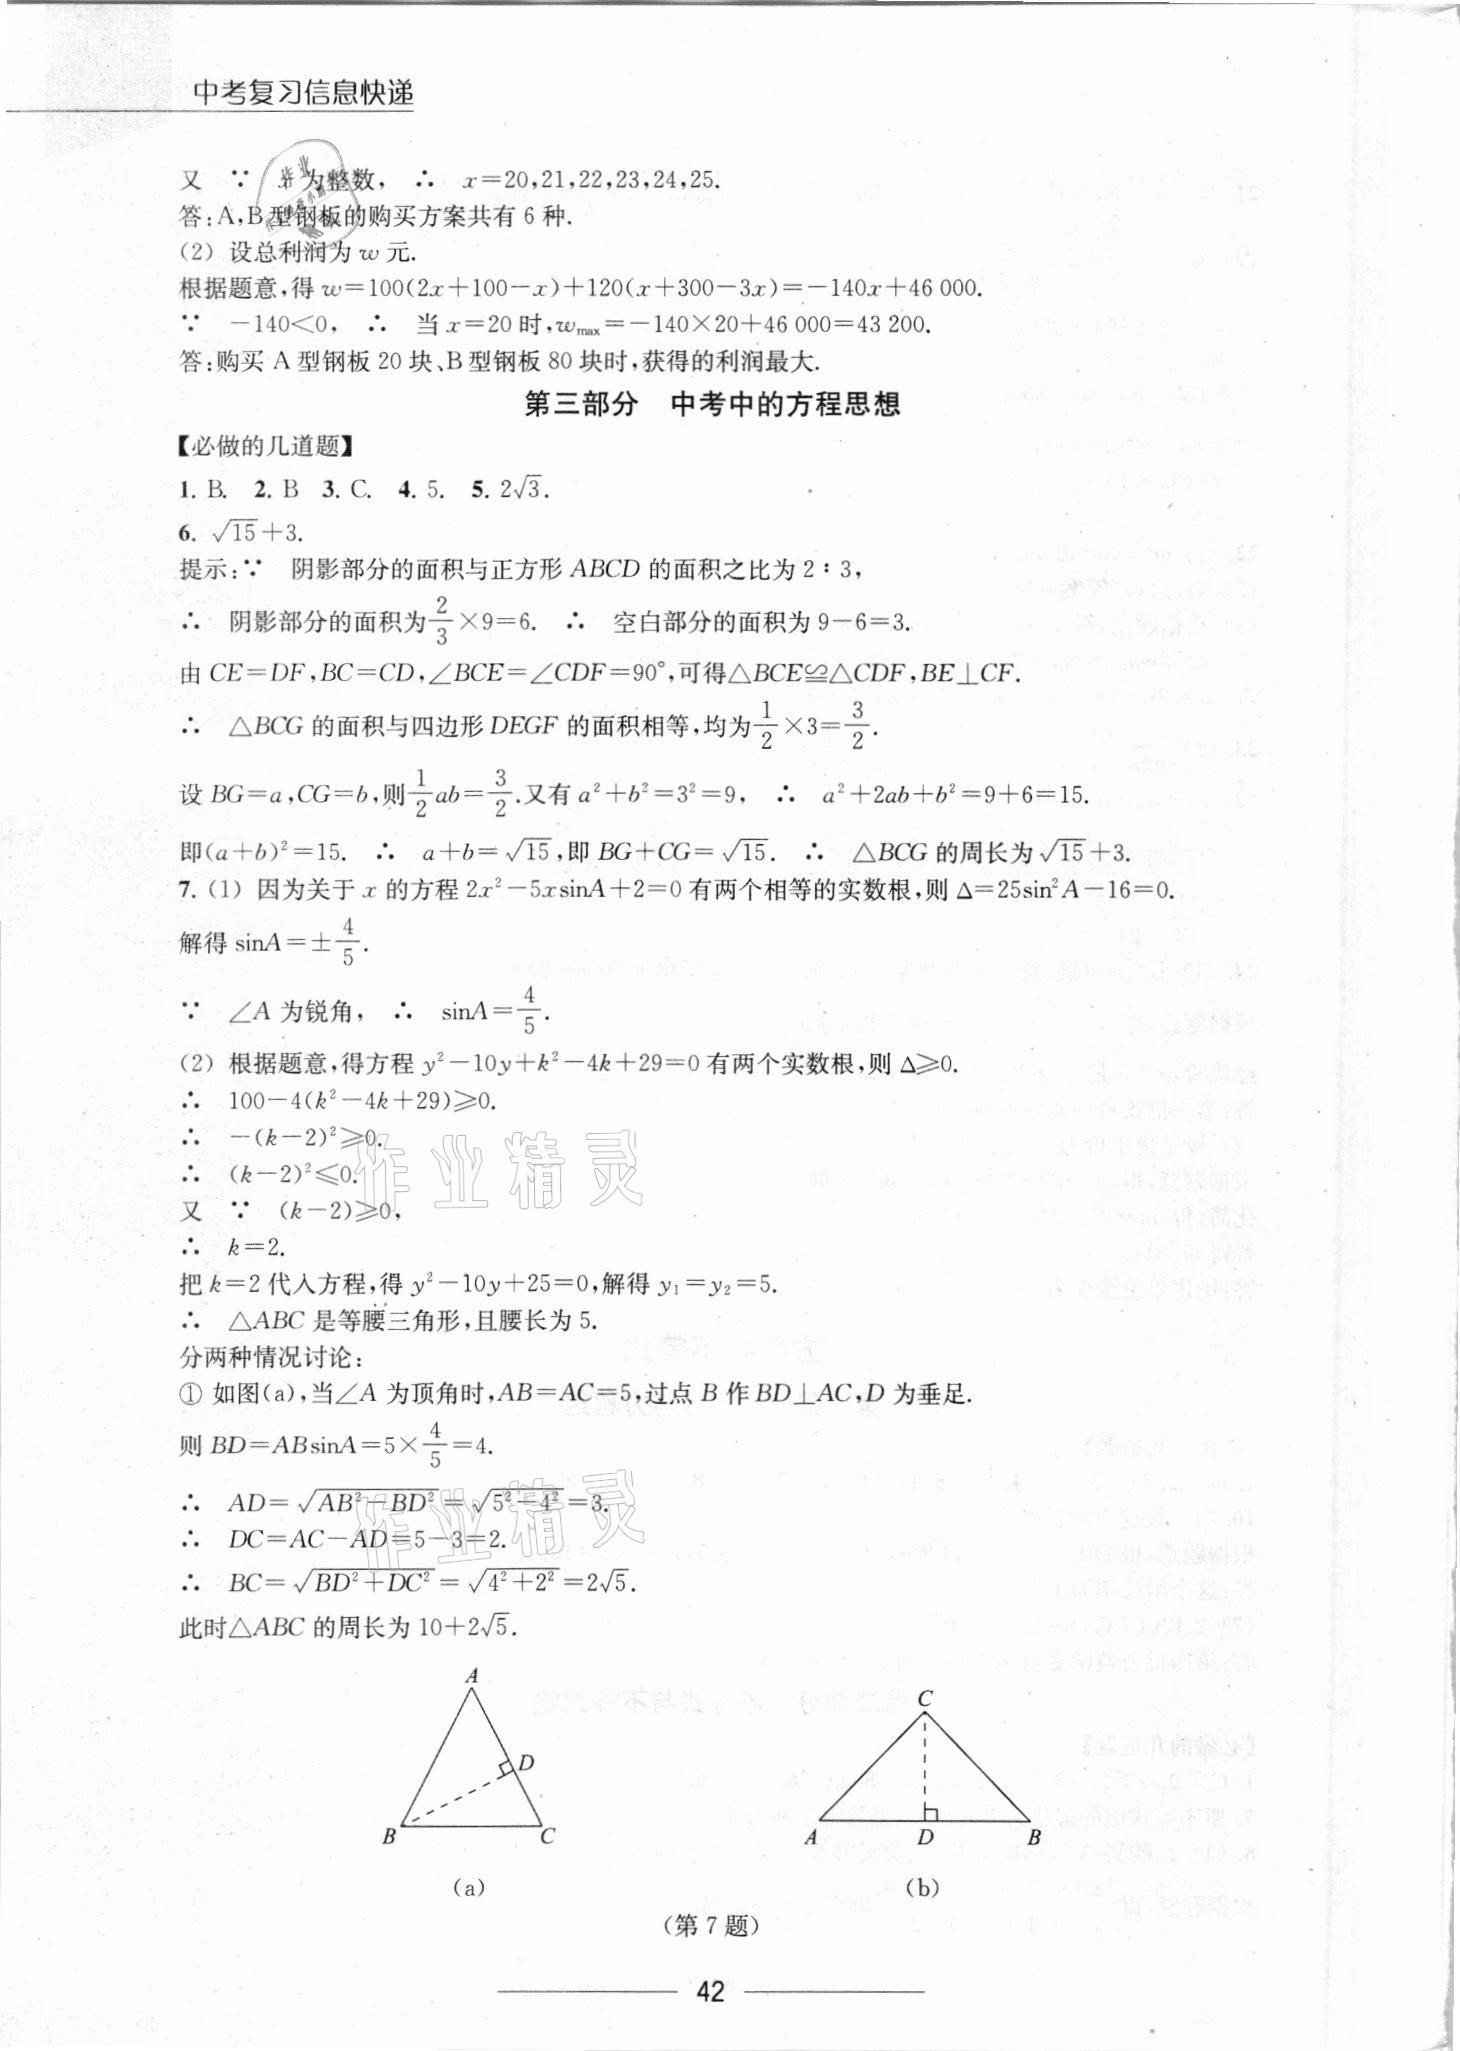 中考复习信息快递
又 ∵ x 为整数, ∴ x=20,21,22,23,24,25.
答:A,B型钢板的购买方案共有 6 种.
(2) 设总利润为 w 元.
根据题意,得 w=100(2x+100-x)+120(x+300-3x)=-140x+46 000.
∵ -140<0, ∴ 当 x=20 时,wmax=-140×20+46 000=43 200.
答:购买 A 型钢板 20 块、B 型钢板 80 块时,获得的利润最大.
第三部分 中考中的方程思想
【必做的几道题】
1. B. 2. B 3. C. 4. 5. 5. 2√3.
6. √15+3.
提示:∵ 阴影部分的面积与正方形 ABCD 的面积之比为 2∶3,
∴ 阴影部分的面积为 2/3 ×9=6. ∴ 空白部分的面积为 9-6=3.
由 CE=DF,BC=CD,∠BCE=∠CDF=90°,可得△BCE≌△CDF,BE⊥CF.
∴ △BCG 的面积与四边形 DEGF 的面积相等,均为 1/2 ×3= 3/2.
设 BG=a,CG=b,则 1/2 ab= 3/2.又有 a²+b²=3²=9, ∴ a²+2ab+b²=9+6=15.
即(a+b)²=15. ∴ a+b=√15,即 BG+CG=√15. ∴ △BCG 的周长为√15+3.
7. (1) 因为关于 x 的方程 2x²-5xsinA+2=0 有两个相等的实数根,则 Δ=25sin²A-16=0.
解得 sinA=± 4/5.
∵ ∠A 为锐角, ∴ sinA= 4/5.
(2) 根据题意,得方程 y²-10y+k²-4k+29=0 有两个实数根,则 Δ⩾0.
∴ 100-4(k²-4k+29)⩾0.
∴ -(k-2)²⩾0.
∴ (k-2)²⩽0.
又 ∵ (k-2)⩾0,
∴ k=2.
把 k=2 代入方程,得 y²-10y+25=0,解得 y₁=y₂=5.
∴ △ABC 是等腰三角形,且腰长为 5.
分两种情况讨论:
① 如图(a),当∠A 为顶角时,AB=AC=5,过点 B 作 BD⊥AC,D 为垂足.
则 BD=ABsinA=5× 4/5 =4.
∴ AD=√(AB²-BD²)=√(5²-4²)=3.
∴ DC=AC-AD=5-3=2.
∴ BC=√(BD²+DC²)=√(4²+2²)=2√5.
此时△ABC 的周长为 10+2√5.
A
D
B
C
(a)
C
A
D
B
(b)
(第 7 题)
42
作业精灵
作业精灵